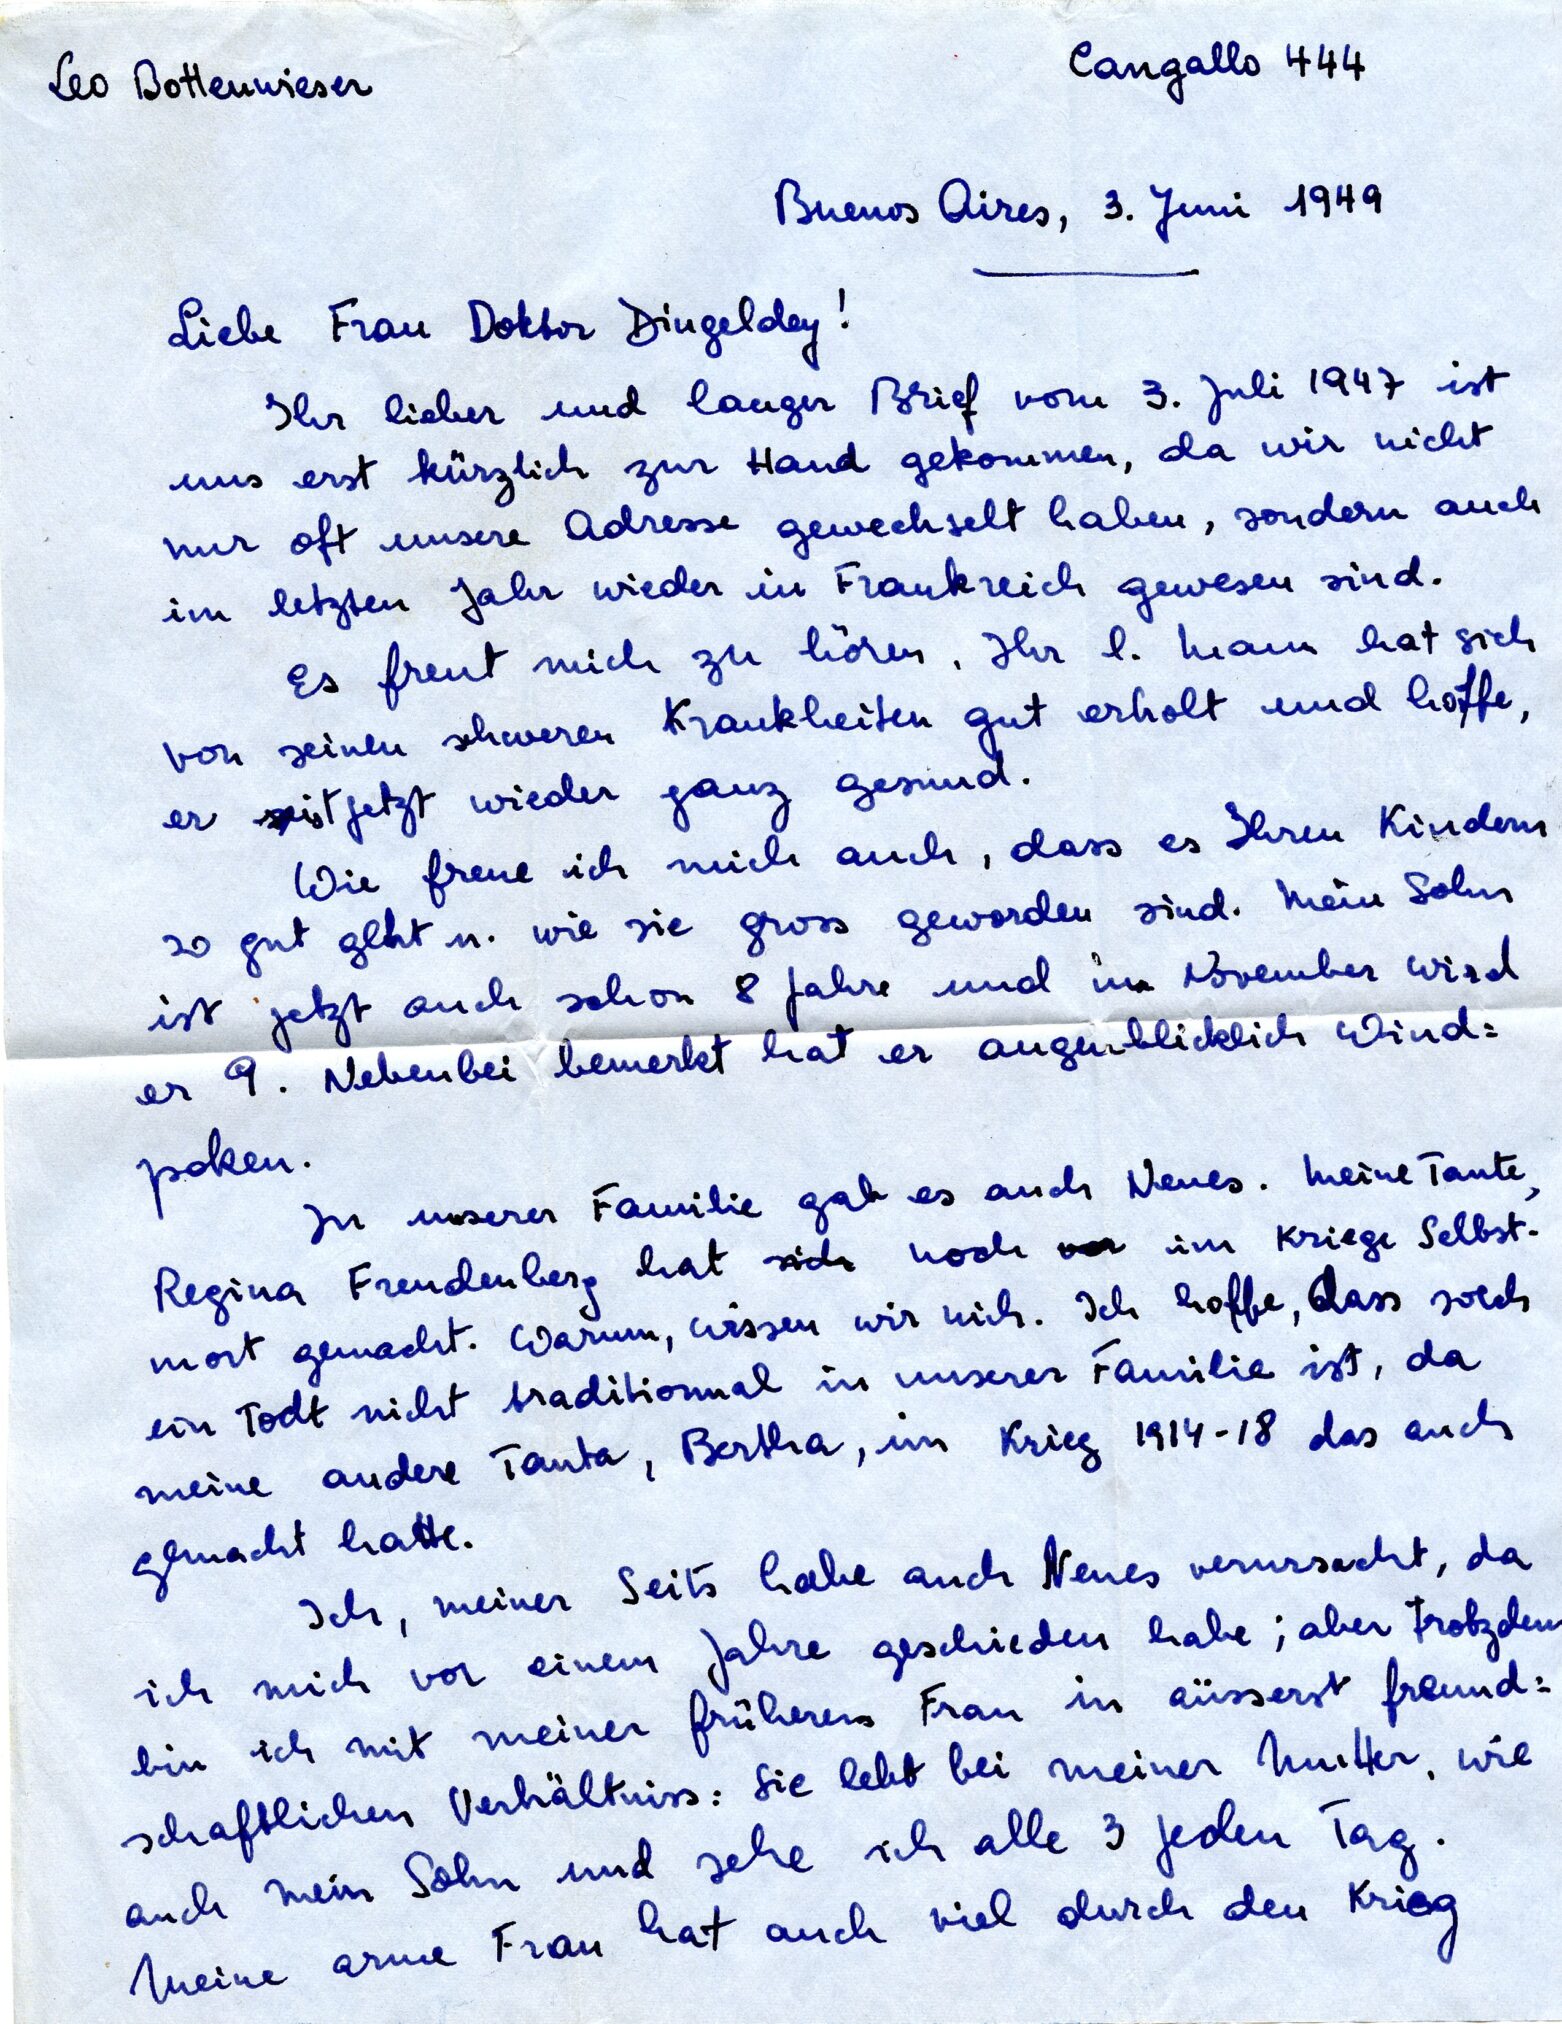 Leo Bottenwieser
Cangallo 444
Buenos Aires, 3. Juni 1949
Liebe Frau Doktor Dingeldey!
Ihr lieber und langer Brief vom 3. Juli 1947 ist
uns erst kürzlich zur Hand gekommen, da wir nicht
nur oft unsere Adresse gewechselt haben, sondern auch
im letzten Jahr wieder in Frankreich gewesen sind.
Es freut mich zu hören, Ihr l. Mann hat sich
von seinen schweren Krankheiten gut erholt und hoffe,
er ist jetzt wieder ganz gesund.
Wie freue ich mich auch, dass es Ihren Kindern
so gut geht u. wie sie gross geworden sind. Mein Sohn
ist jetzt auch schon 8 Jahre und im November wird
er 9. Nebenbei bemerkt hat er augenblicklich Wind=
poken.
In unserer Familie gab es auch Neues. Meine Tante,
Regina Freudenberg hat sich noch vor im Kriege Selbst-
mort gemacht. Warum, wissen wir nich. Ich hoffe, dass solch
ein Todt nicht traditionnal in unserer Familie ist, da
meine andere Tanta, Bertha, im Krieg 1914-18 das auch
gemacht hatte.
Ich, meiner Seits habe auch Neues verursacht, da
ich mich vor einem Jahre geschieden habe; aber trotzdem
bin ich mit meiner früheren Frau in äüsserst freund=
schaftlichen Verhältniss: Sie lebt bei meiner Mutter, wie
auch mein Sohn und sehe ich alle 3 jeden Tag.
Meine arme Frau hat auch viel durch den Krieg